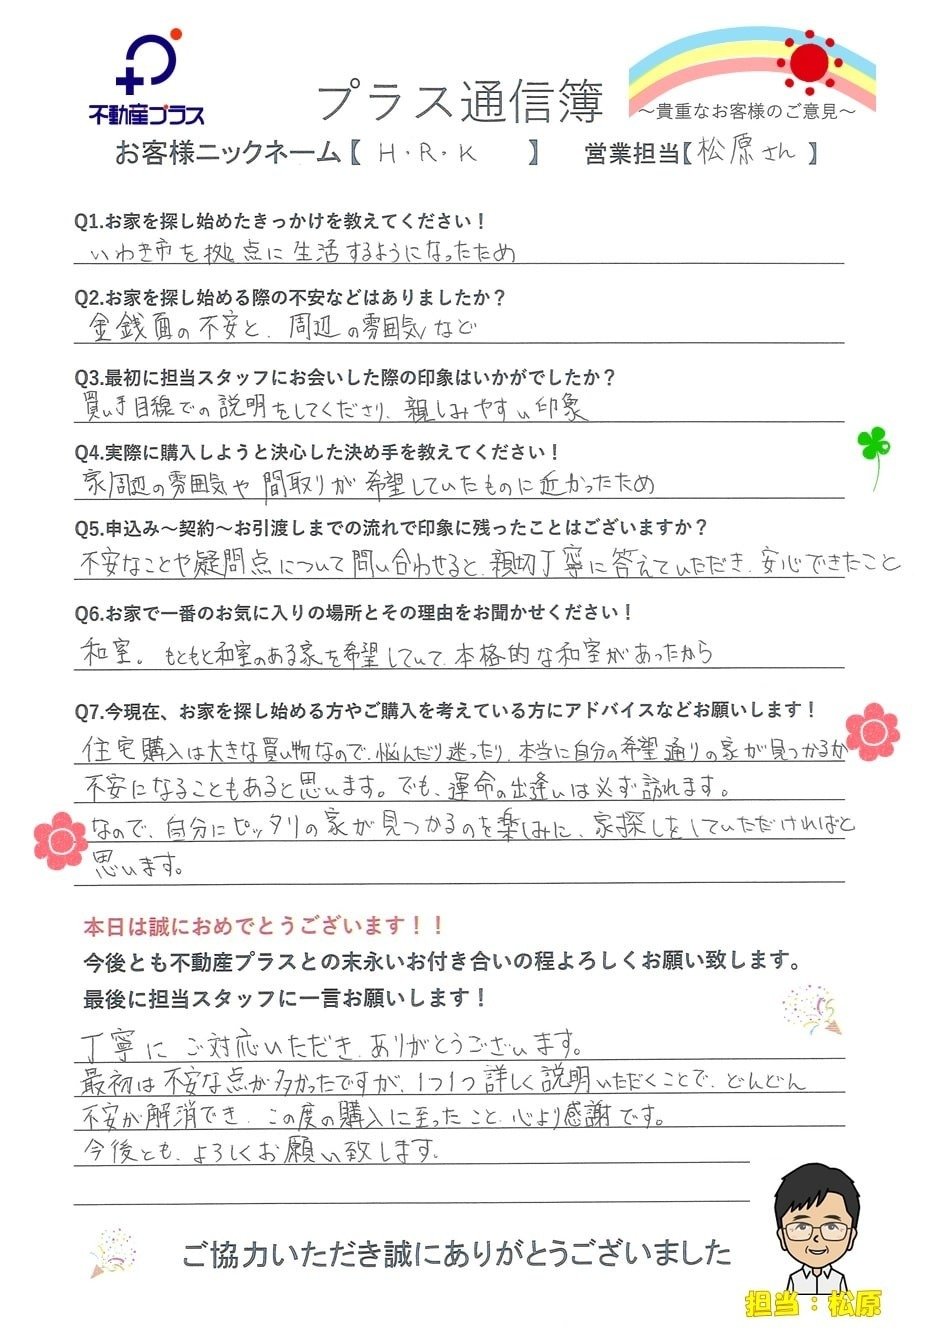 不動産プラス
プラス通信簿
～貴重なお客様のご意見～
お客様ニックネーム【 H・R・K 】 営業担当【松原さん】
Q1.お家を探し始めたきっかけを教えてください！
いわき市を拠点に生活するようになったため
Q2.お家を探し始める際の不安などはありましたか？
金銭面の不安と、周辺の雰囲気など
Q3.最初に担当スタッフにお会いした際の印象はいかがでしたか？
買い手目線での説明をしてくださり、親しみやすい印象
Q4.実際に購入しようと決心した決め手を教えてください！
家周辺の雰囲気や間取りが希望していたものに近かったため
Q5.申込み～契約～お引渡しまでの流れで印象に残ったことはございますか？
不安なことや疑問点について問い合わせると、親切丁寧に答えていただき、安心できたこと
Q6.お家で一番のお気に入りの場所とその理由をお聞かせください！
和室。もともと和室のある家を希望していて、本格的な和室があったから
Q7.今現在、お家を探し始める方やご購入を考えている方にアドバイスなどお願いします！
住宅購入は大きな買い物なので、悩んだり迷ったり、本当に自分の希望通りの家が見つかるか
不安になることもあると思います。でも、運命の出逢いは必ず訪れます。
なので、自分にピッタリの家が見つかるのを楽しみに、家探しをしていただければと
思います。
本日は誠におめでとうございます！！
今後とも不動産プラスとの末永いお付き合いの程よろしくお願い致します。
最後に担当スタッフに一言お願いします！
丁寧にご対応いただき、ありがとうございます。
最初は不安な点が多かったですが、1つ1つ詳しく説明いただくことで、どんどん
不安が解消でき、この度の購入に至ったこと、心より感謝です。
今後とも、よろしくお願い致します。
ご協力いただき誠にありがとうございました
担当：松原